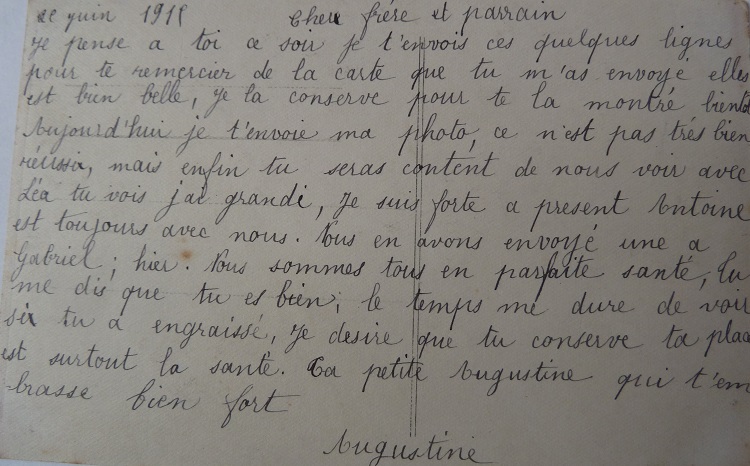 juin 1915 Cher frére et parrain
Je pense a toi ce soir je t'envois ces quelques lignes
pour te remercier de la carte que tu m'as envoyé elles
est bien belle, je la conserve pour te la montré bientot
Aujourd'hui je t'envoie ma photo, ce n'est pas trés bien
réussi, mais enfin tu seras content de nous voir avec
Léa tu vois j'ai grandi, Je suis forte a present Antoine
est toujours avec nous. Nous en avons envoyé une a
Gabriel; hier. Nous sommes tous en parfaite santé, Tu
me dis que tu es bien; le temps me dure de voir
si tu a engraissé, Je desire que tu conserve ta place
est surtout la sante. Ta petite Augustine qui t'em
brasse bien fort
Augustine